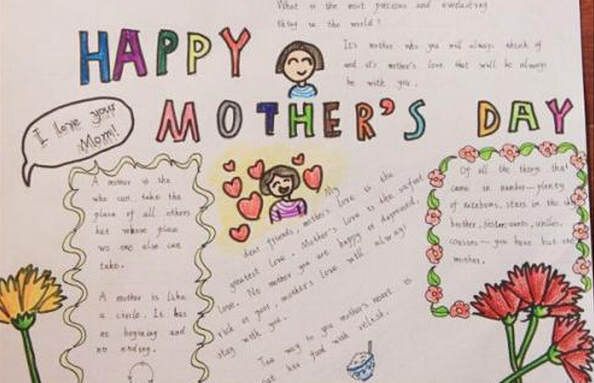 What is the most precious and everlasting
thing in the world?
It's mother who you will always think of
and it's mother's love that will be always
be with you.
HAPPY
MOTHER'S DAY
I love your
Mom!
A mother is she
who can take the
place of all others
but whose place
no one else can
take.
A mother is like
a circle. It has
no begining and
no ending.
My
dear friends, mother's love is the
greatest love. Mother's love is the
love. No mother you are happy or depressed,
rich or poor, mother's love will always
stay with you.
The way to you mother's heart is
food with relish.
Of all the things that
came in number—plenty
of rainbows, stars in the sky
brother, sister, aunts, uncles,
cousins—you have but one
mother.